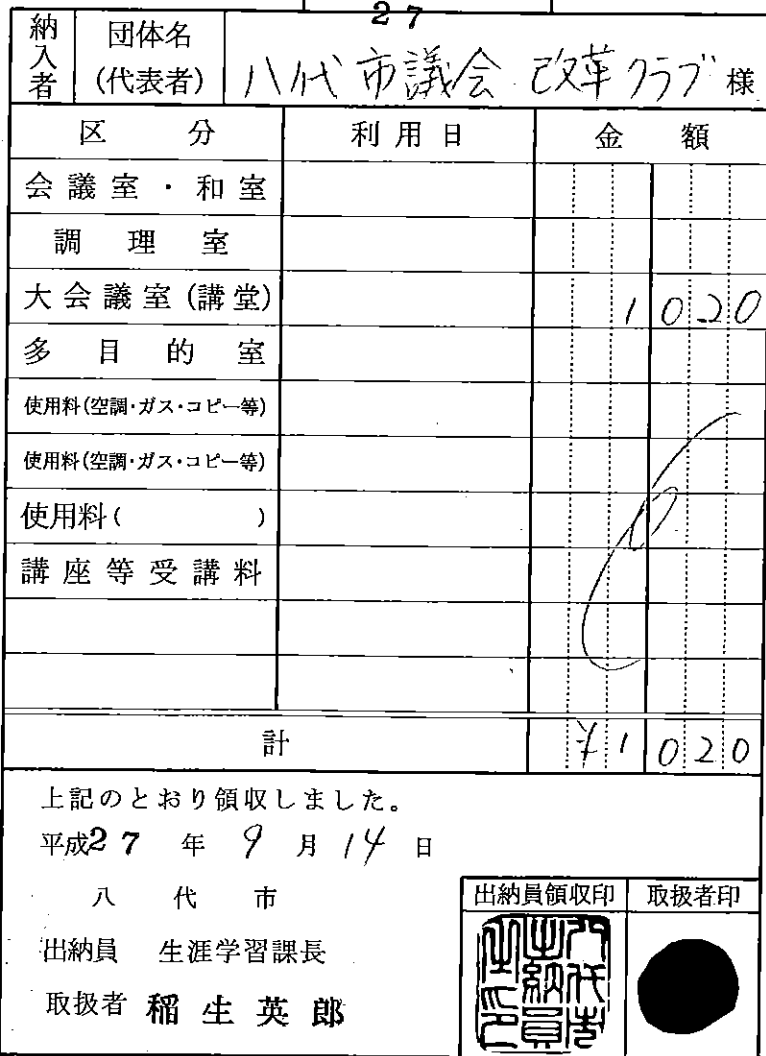 27
納入者 団体名(代表者) 八代市議会 改革クラブ 様
区分 利用日 金額
会議室・和室
調理室
大会議室(講堂) 1020
多目的室
使用料(空調・ガス・コピー等)
使用料(空調・ガス・コピー等)
使用料( )
講座等受講料
計 ¥1020
上記のとおり領収しました。
平成27年9月14日
八代市
出納員領収印 取扱者印
出納員 生涯学習課長
取扱者 稲生英郎